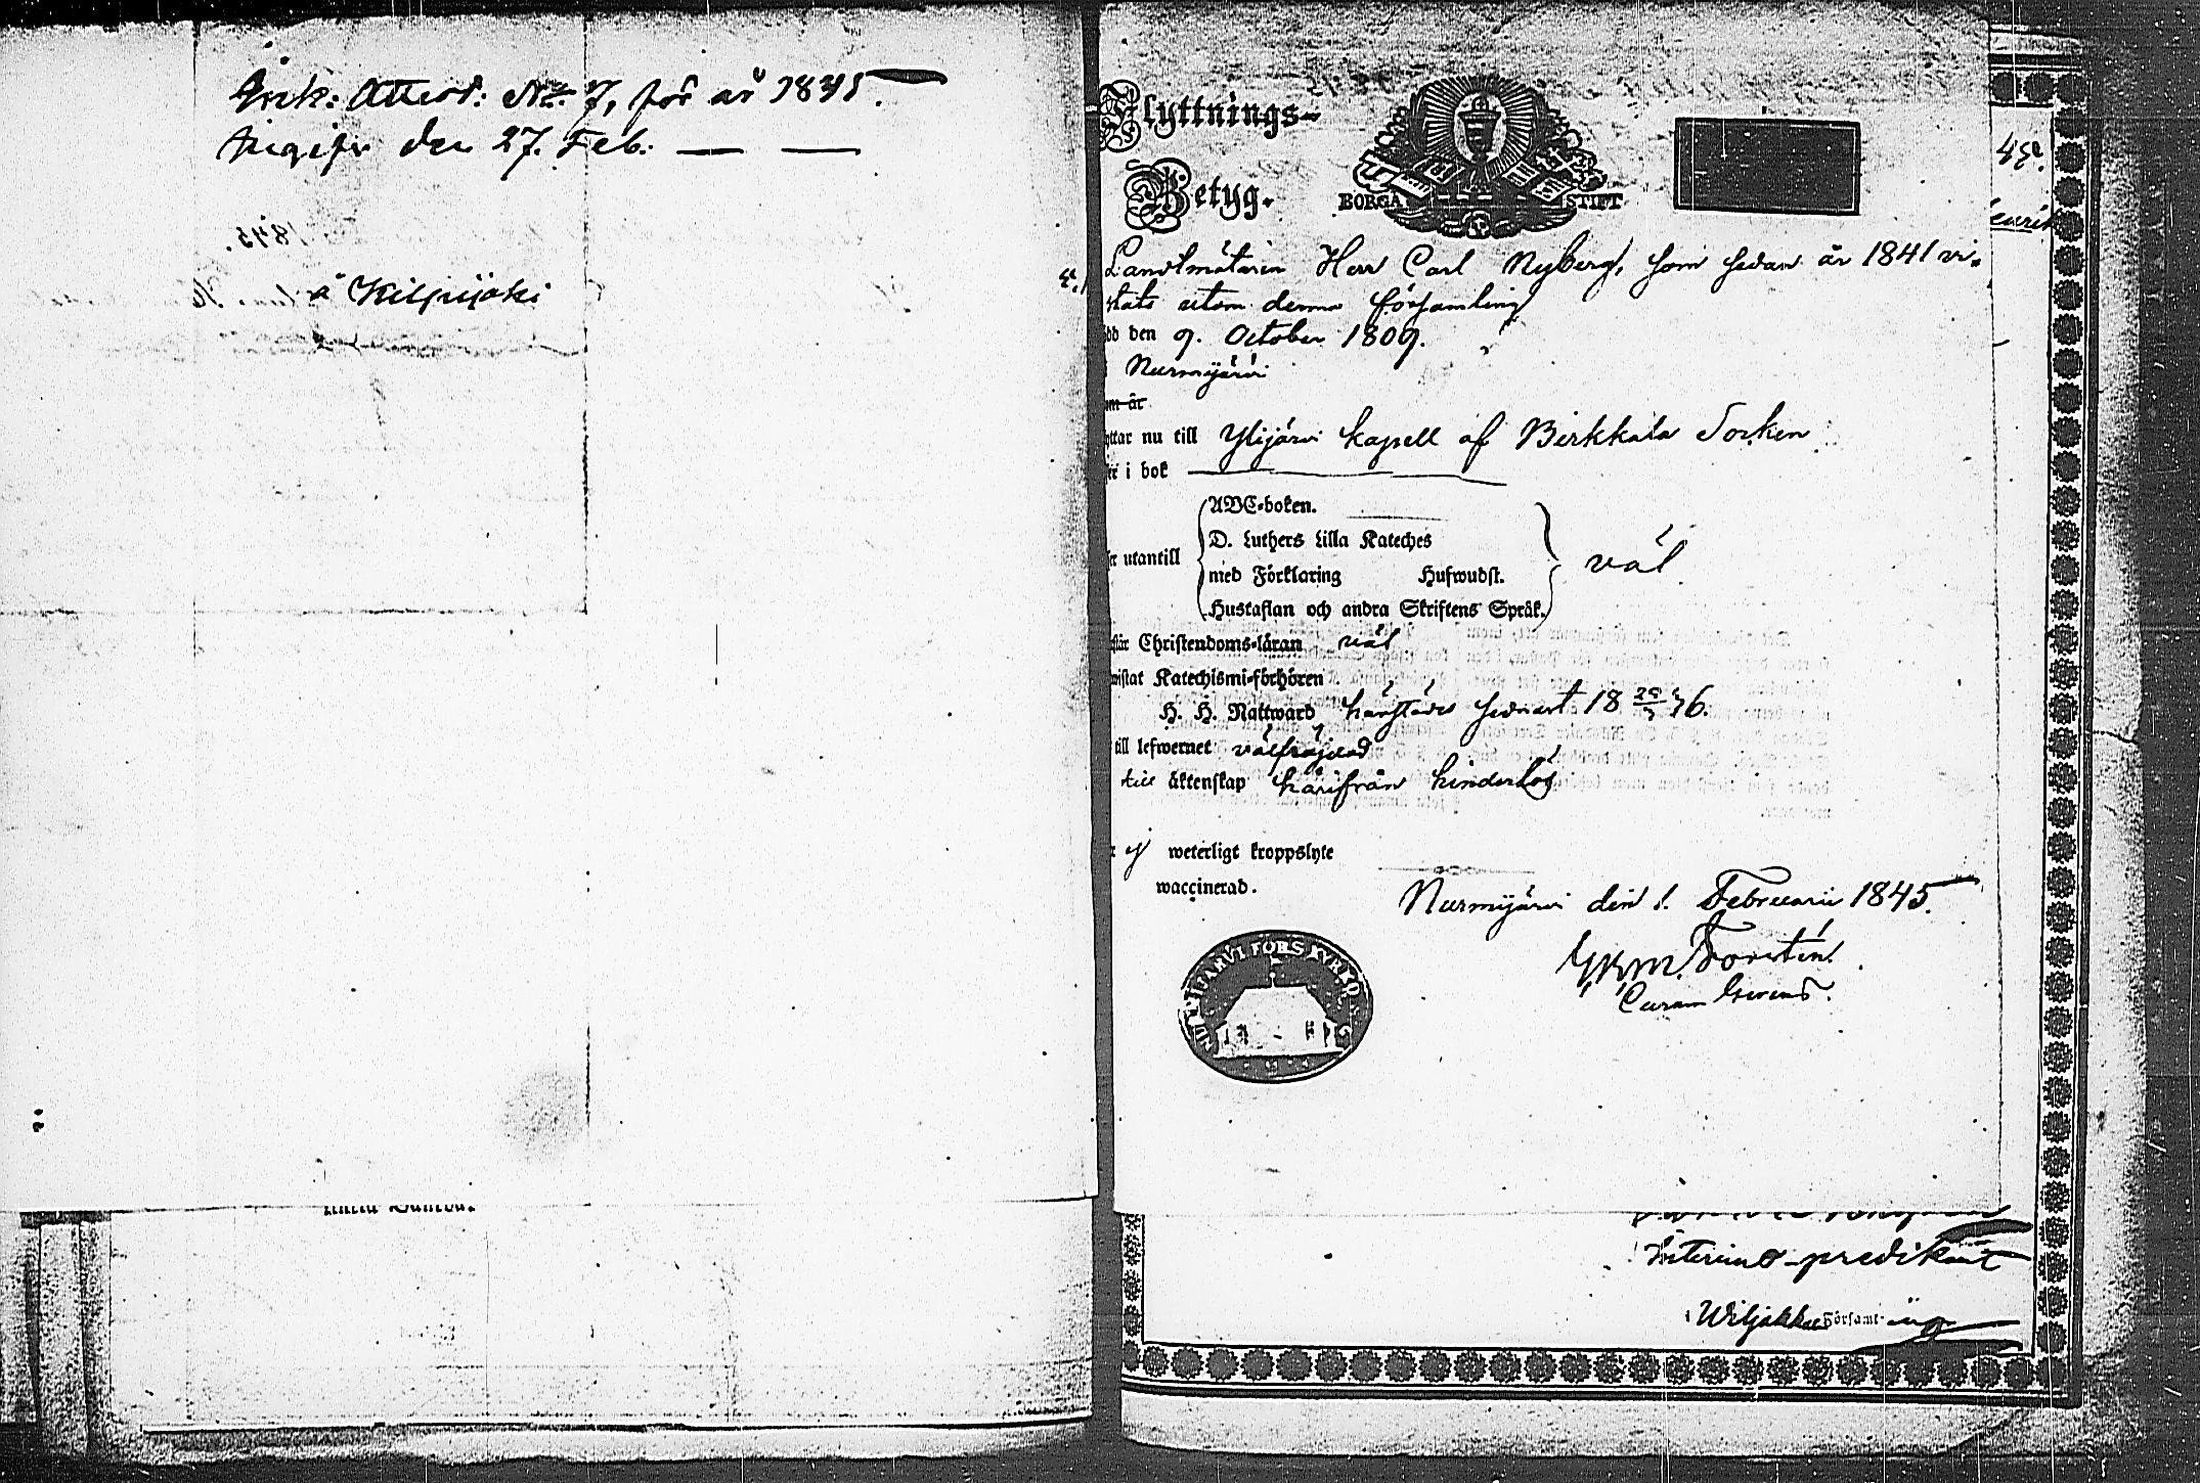 Ank: Attest: No 7, för år 1845.
den 27. Feb.
å Kilpijoki
Flyttnings-
Betyg.
BORGÅ STIFT
Landtmätaren Herr Carl Nyberg, som sedan år 1841 vi-
stats utom denna församling
dd den 9. October 1809.
i Nurmijärvi
um är
yttar nu till Ylijärvi kapell af Birkkala Socken
er i bok
ABC-boken.
D. Luthers Lilla Kateches
er utantill
med Förklaring Hufwudst.
väl
Hustaflan och andra Skriftens Språk.
Christendoms-läran väl
wistat Katechismi-förhören
H. H. Nattward senast 18
till lefwernet välfrejdad
till äktenskap härifrån hinderlös
ej weterligt kroppslyte
waccinerad.
Nurmijärvi den 1. Februarii 1845.
Forstén.
NURMIJÄRVI FÖRS KYRKO
Interims-predikant
i Wiljakkala Församl-ing